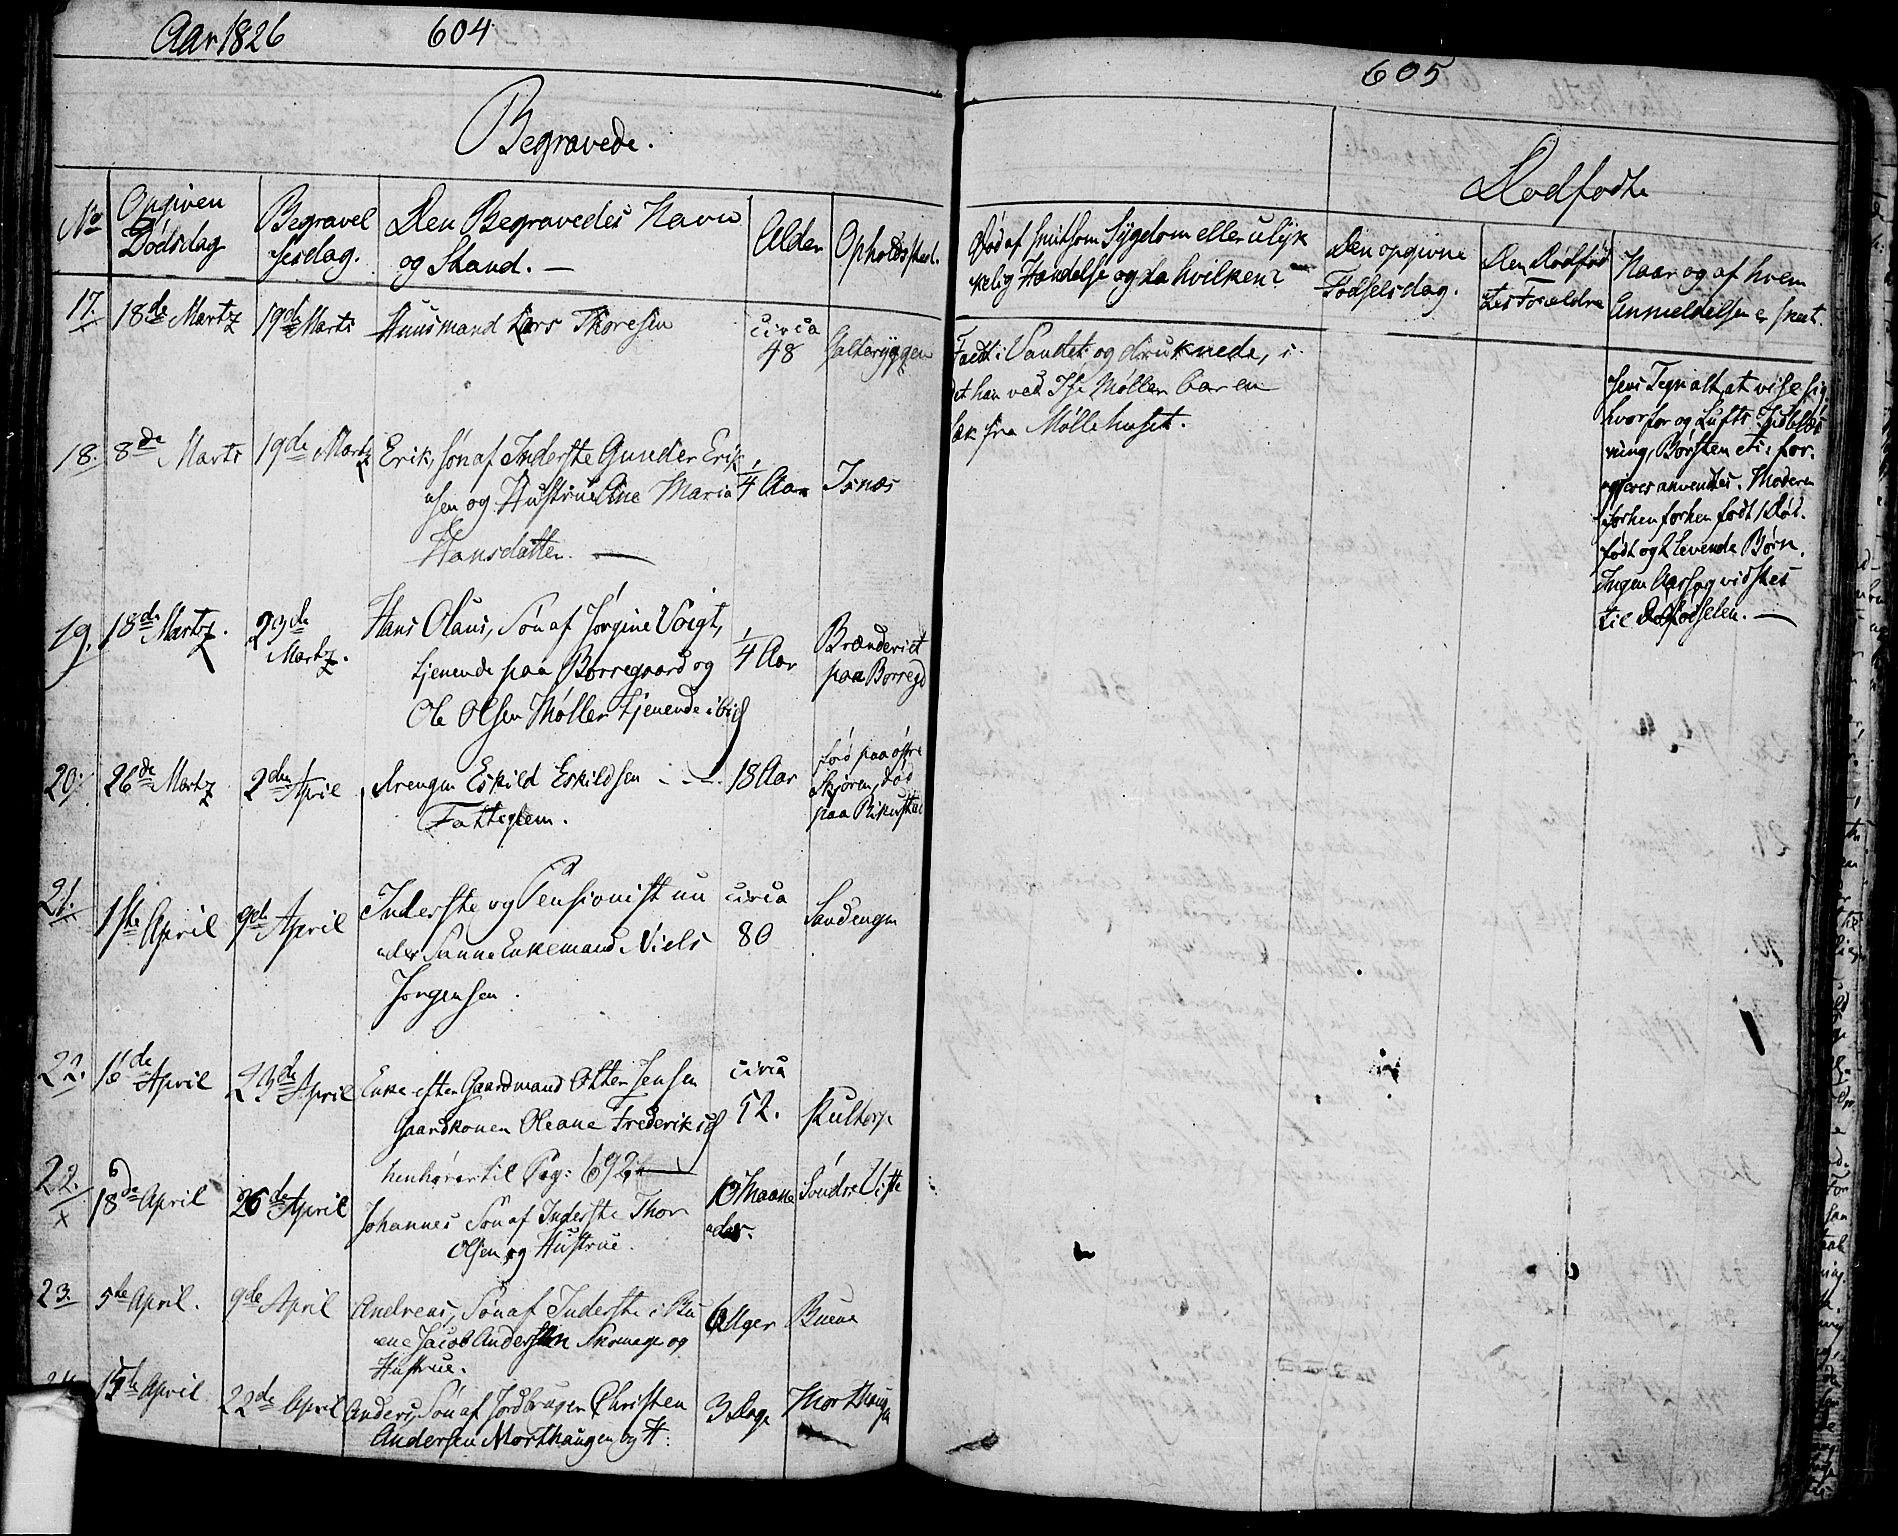 Aar 1826
604
Begravede.
No
Opgiven
Dødsdag
Begravel
sesdag.
Den Begravedes Navn
og Stand. —
Alder
Opholdssted.
17.
18de Martz
19de Marts
Huusmand Lars Thoresen
circa
48
Salteryggen
18.
8de Marts
19de Martz
Erik, Søn af Inderste Gunder Erik
sen og Hustrue Maria
Hansdatter. —
1/4 Aar
Isnæs
19.
18de Martz.
23de
Martz.
Hans Olaus, Søn af Jørgine Voigt,
tjenende paa Borregaard og
Ole Olsen Møller tjenende ibid
1/4 Aar
Brænderiet
paa Borregd
20.
26de Martz
2den April
Drengen Eskild Eskildsen - - -
Fattiglem.
18 Aar
født paa østre
Skjøren, død
paa
21.
1ste April
9de April
Inderste og Pensionist un
der Sanne Enkemand Niels
Jørgensen.
circa
80
Sandengen
22.
April
23de April
Enke efter Gaardmand Otter Jensen
Gaardkonen Oleane Frederiksd
henhører til Pag: 692
circa
52.
Kultorp
22.
x
18de April
26de April
Johannes Søn af Inderste Thor
Olsen og Hustrue.
Maane
eder.
Søndre Viste
23.
5te April.
9de April
Andreas, Søn af Inderste i Bu
ene Jacob Andersen og
Hustrue.
6 Uger
Buene
15de April
22de April
Anders, Søn af Jordbruger Christen
Andersen Morthaugen og H:
3 Dage
Morthaugen
605
Dødfødte
Død af smitsom Sygdom eller ulyk
kelig Hændelse og da hvilken? —
Den opgivne
Fødselsdag.
Den Dødfød
tes Forældre
Naar og af hvem
Anmeldelsen er skeet.
Faldt i Vandet og druknede, i
det han ved Ise Møller bar en
Sæk fra Møllehuset.
sens Tegn alt, at vise sig
hvorfor og Lufts Indblæs
ning, Børsten etc: for.
gjeves anvendtes. Moderen
forhen født 1 Død.
født og 2 levende Børn.
Ingen Aarsag vidstes
til Dødfødselen. —